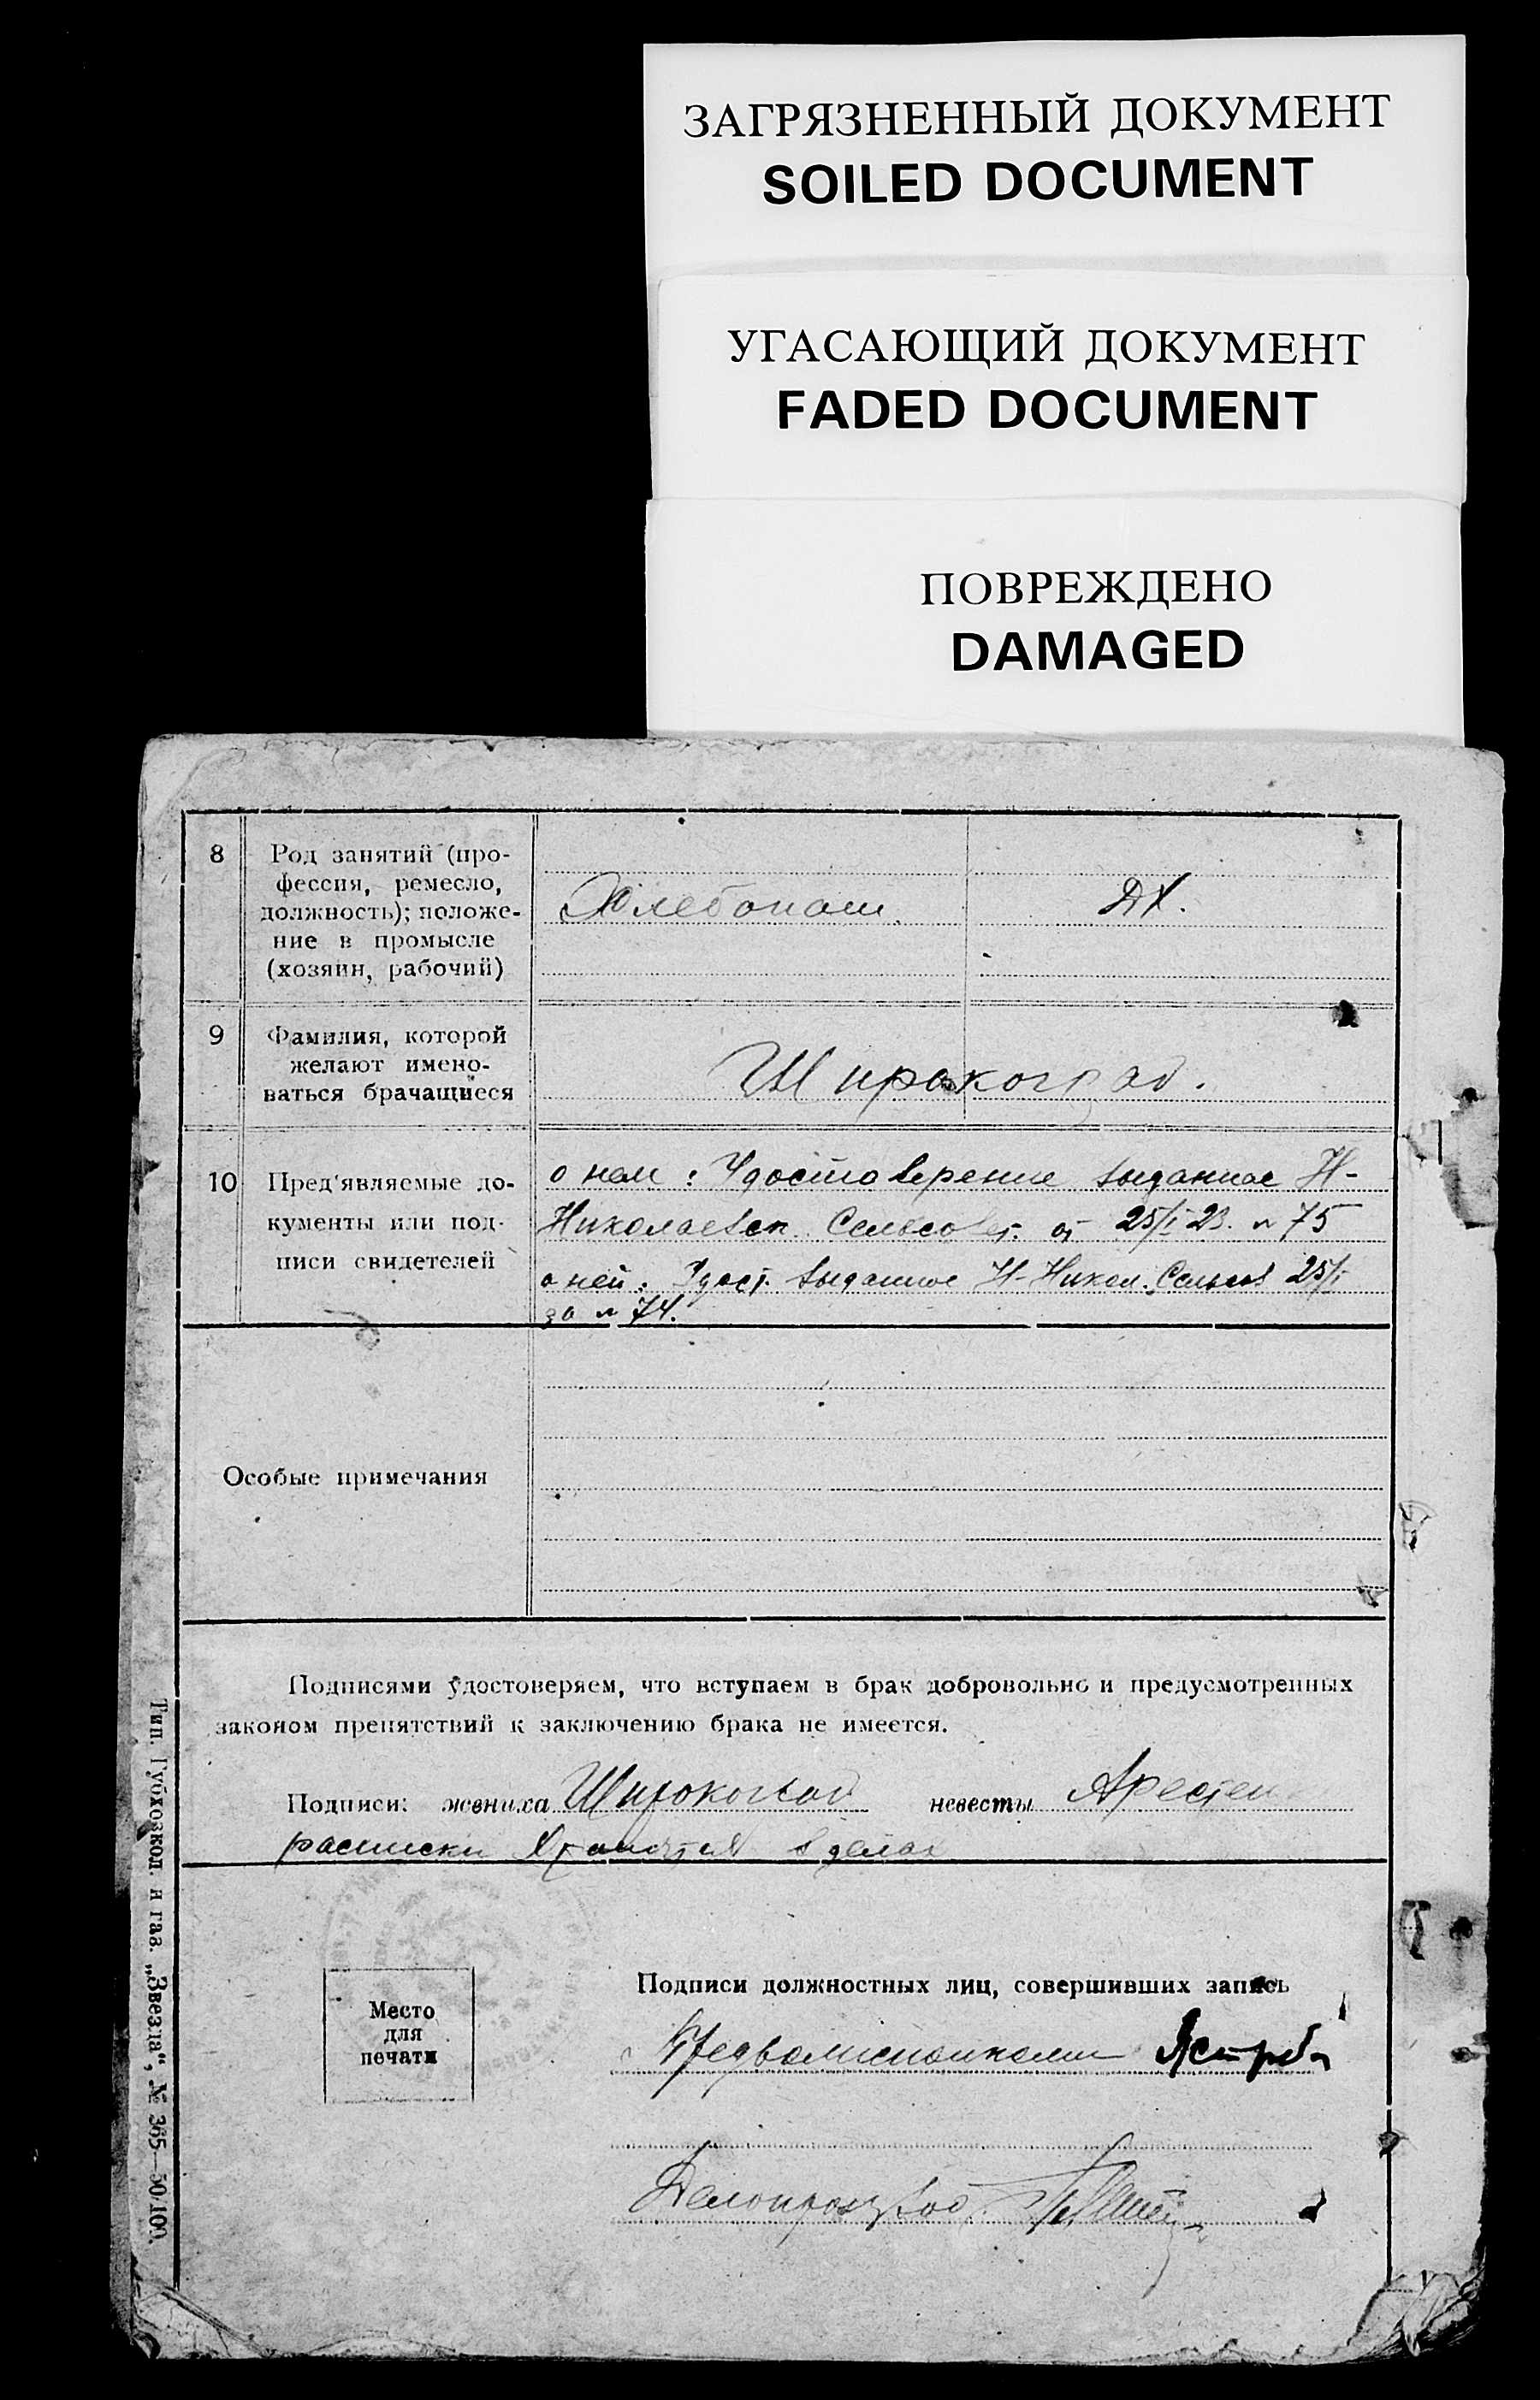 ЗАГРЯЗНЕННЫЙ ДОКУМЕНТ
SOILED DOCUMENT
УГАСАЮЩИЙ ДОКУМЕНТ
FADED DOCUMENT
ПОВРЕЖДЕНО
DAMAGED
8
Род занятий (про-
фессия, ремесло,
должность); положе-
ние в промысле
(хозяин, рабочий)
Хлебопаш.
ДХ.
9
Фамилия, которой
желают имено-
ваться брачащиеся
Широкоград.
10
Пред'являемые до-
кументы или под-
писи свидетелей
о нем: Удостоверение выданное Н-
Николаевск. Сельсовет. от 25/I 23. № 75
о ней: Удост. выданное Н-Никол. Сельсов 25/I
за № 74.
Особые примечания
Подписями удостоверяем, что вступаем в брак добровольно и предусмотренных
законом препятствий к заключению брака не имеется.
Подписи: жениха Широкоград невесты Арестен
расписки хранятся в делах
Место
для
печати
Подписи должностных лиц, совершивших запись
Предволисполкома
Делопроизвод.
Тип. Губхозкол. и газ. „Звезда“, № 365—50/100.